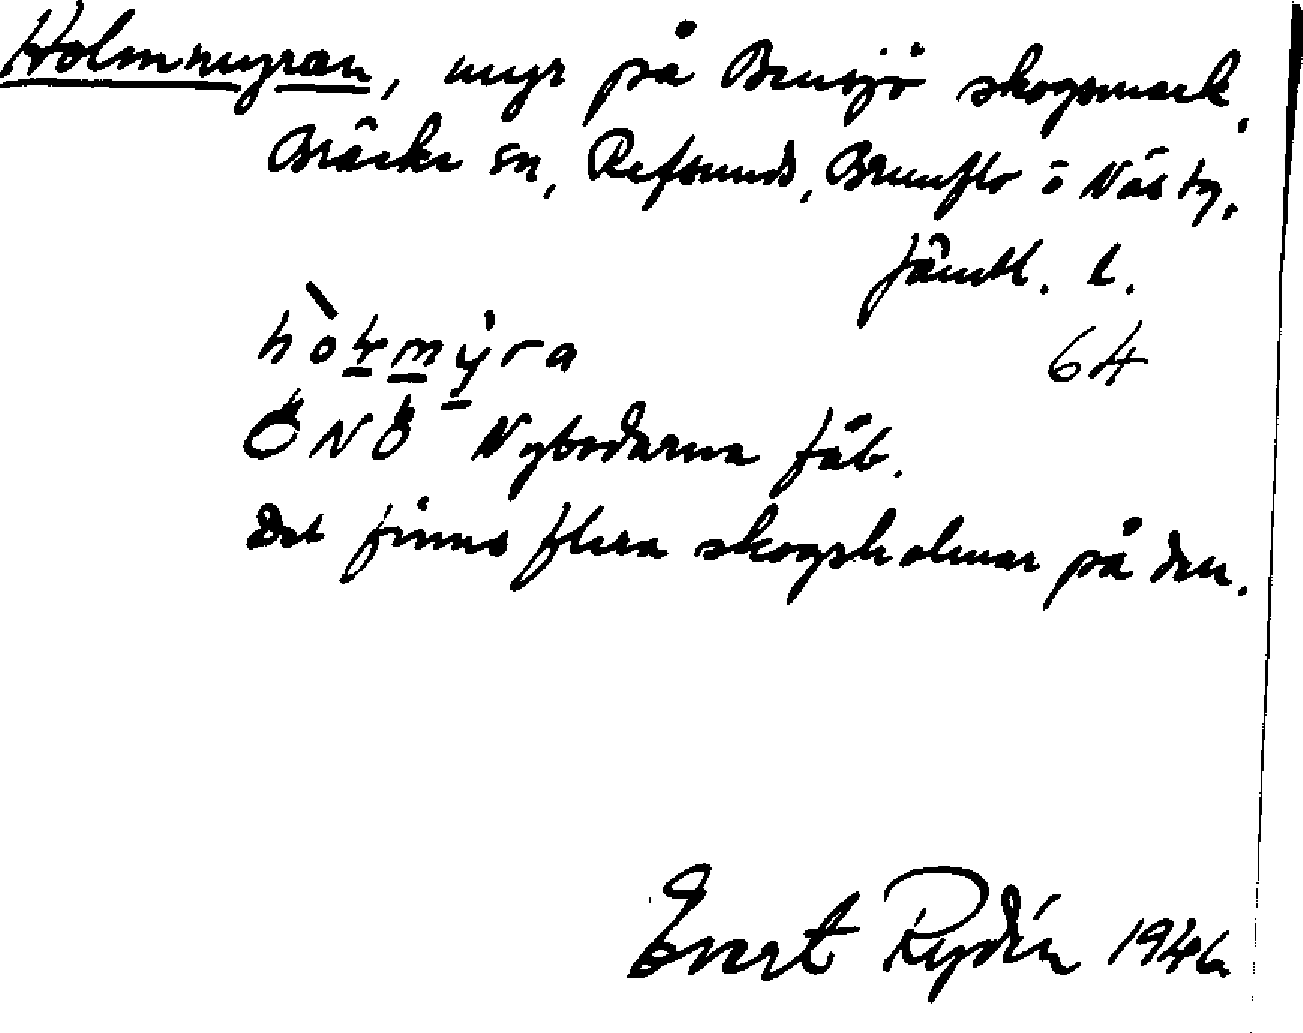 Holmmyran, myr på Bensjö skogsmark,
Bräcke sn, Refsunds, Brunflo o Näs tg,
Jämtl. l.
64
ÖNÖ Nybodarna fäb.
Det finns flera skogsholmar på den.
Evert Rydén 1946